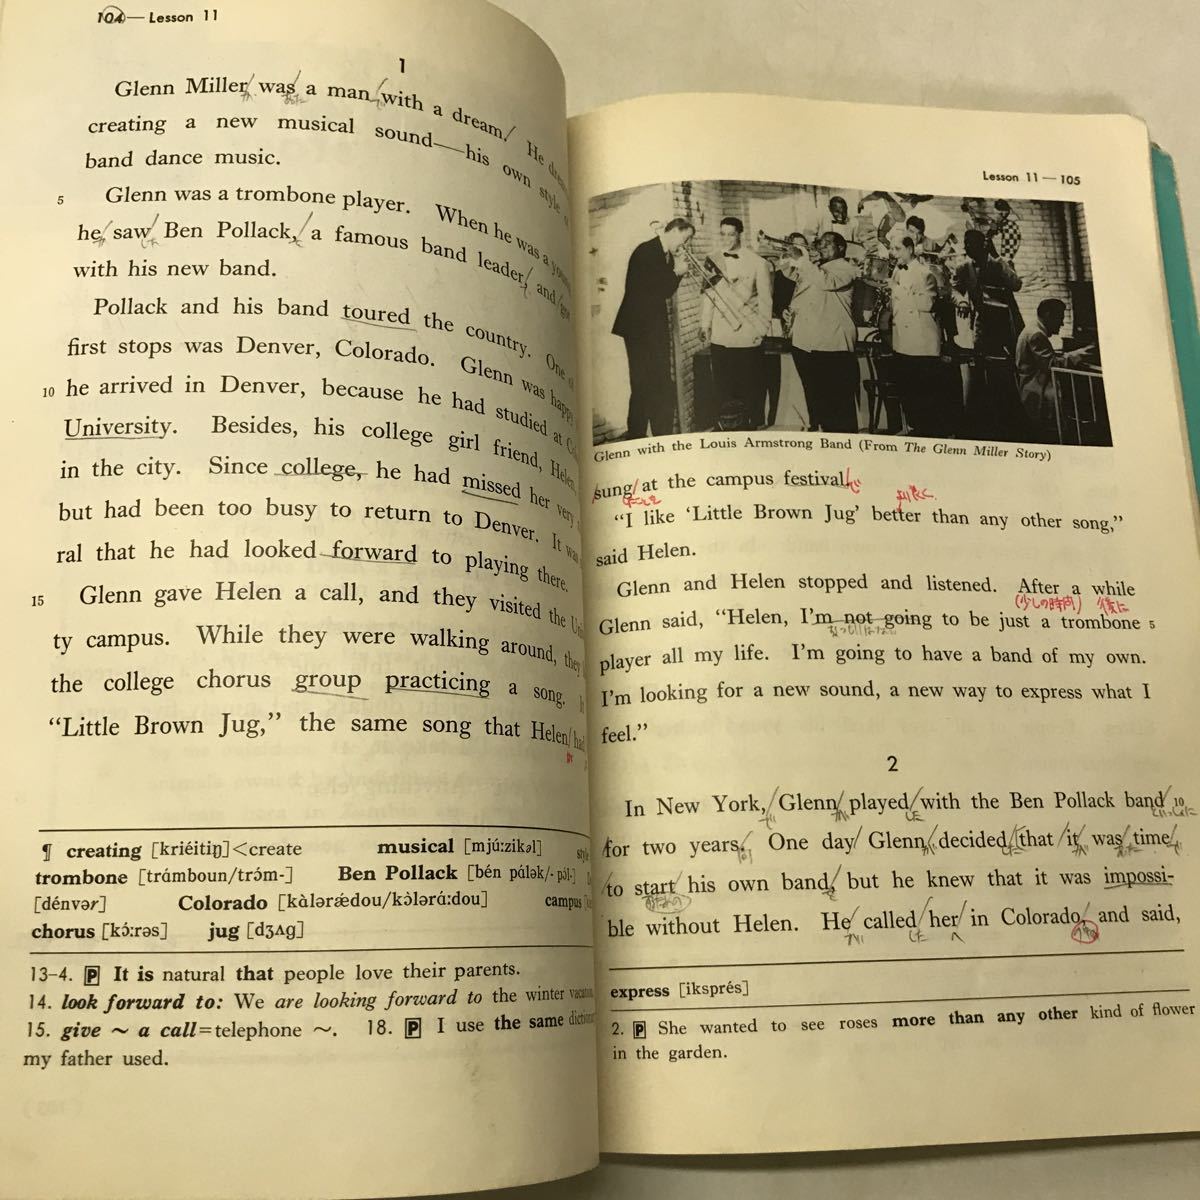 104—Lesson 11
1
Glenn Miller was a man with a dream. He
creating a new musical sound—his own style
band dance music.
5 Glenn was a trombone player. When he was a
he saw Ben Pollack, a famous band leader, and
with his new band.
Pollack and his band toured the country. One
first stops was Denver, Colorado. Glenn was happy
10 he arrived in Denver, because he had studied at
University. Besides, his college girl friend, Helen,
in the city. Since college, he had missed her very
but had been too busy to return to Denver. It was
ral that he had looked forward to playing there.
15 Glenn gave Helen a call, and they visited the
ty campus. While they were walking around, they
the college chorus group practicing a song.
“Little Brown Jug,” the same song that Helen had
¶ creating [kriéitiŋ]<create musical [mjú:zikəl] style
trombone [trámboun/trɔ́m-] Ben Pollack [bén pálək/-pɔ́l-]
[dénvər] Colorado [kàlərǽdou/kɔ̀lərá:dou] campus
chorus [kɔ́:rəs] jug [dʒʌg]
13-4. P It is natural that people love their parents.
14. look forward to: We are looking forward to the winter vacation.
15. give ~ a call=telephone ~. 18. P I use the same
my father used.
Lesson 11—105
Glenn with the Louis Armstrong Band (From The Glenn Miller Story)
sung at the campus festival.
で
たことを
より良く
“I like ‘Little Brown Jug’ better than any other song,”
said Helen.
Glenn and Helen stopped and listened. After a while
(少しの時間) 後に
Glenn said, “Helen, I’m not going to be just a trombone 5
player all my life. I’m going to have a band of my own.
I’m looking for a new sound, a new way to express what I
feel.”
2
In New York, Glenn played with the Ben Pollack band 10
for two years. One day Glenn decided that it was time
to start his own band, but he knew that it was impossi-
ble without Helen. He called her in Colorado and said,
express [iksprés]
2. P She wanted to see roses more than any other kind of flower
in the garden.